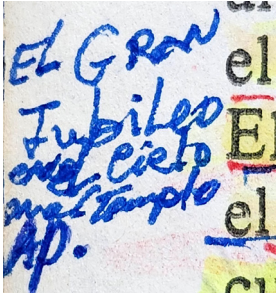 EL GRAN
Jubileo
en el Cielo
en el Templo
AP.
el
El
el